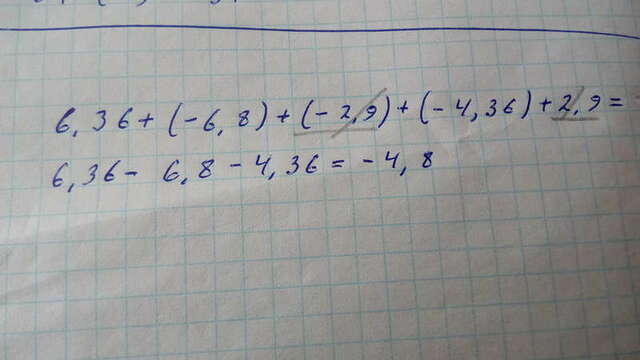 6,36+(-6,8)+(-2,9)+(-4,36)+2,9=
6,36- 6,8-4,36=-4,8